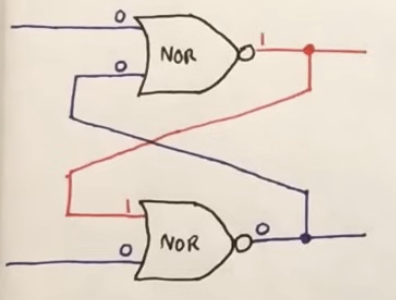 0
0
NOR
1
1
0
NOR
0